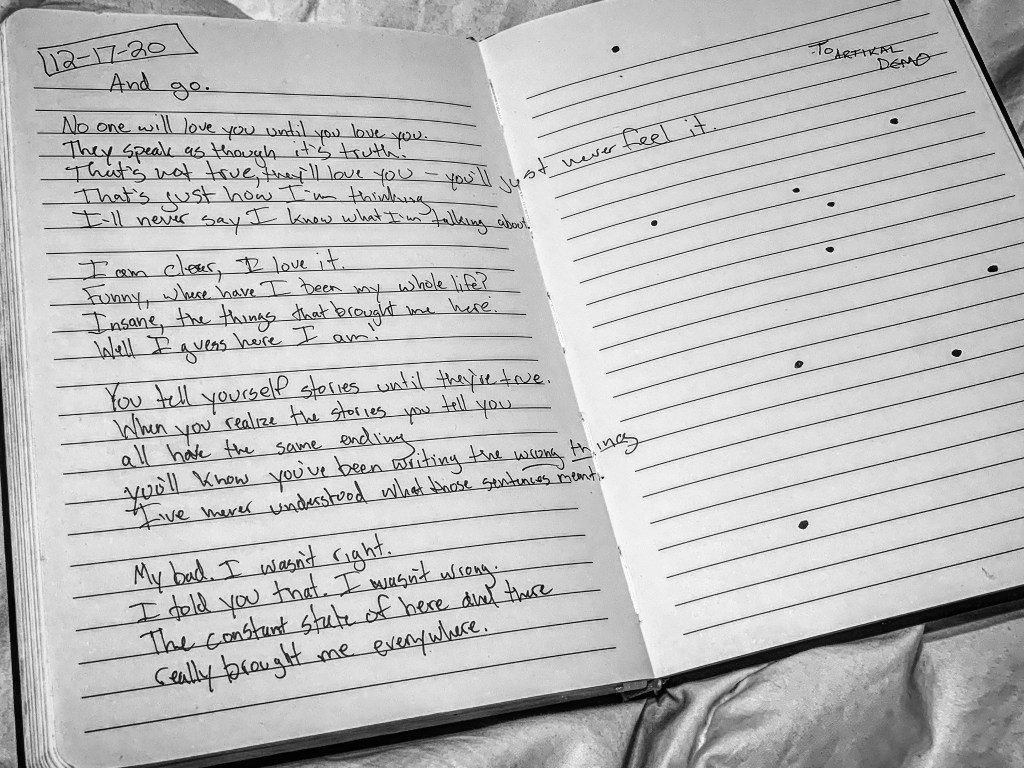 12-17-20
And go.
No one will love you until you love you.
They speak as though it's truth.
That's not true, they'll love you – you'll just never feel it.
That's just how I'm thinking
I'll never say I know what I'm talking about.
I am clear, I love it.
Funny, where have I been my whole life?
Insane, the things that brought me here.
Well I guess here I am!
You tell yourself stories until they're true.
When you realize the stories you tell you
all have the same ending
you'll know you've been writing the wrong things
I've never understood what those sentences meant.
My bad. I wasn't right.
I told you that. I wasn't wrong.
The constant state of here and there
really brought me everywhere.
To ARTIKAL
DEMO